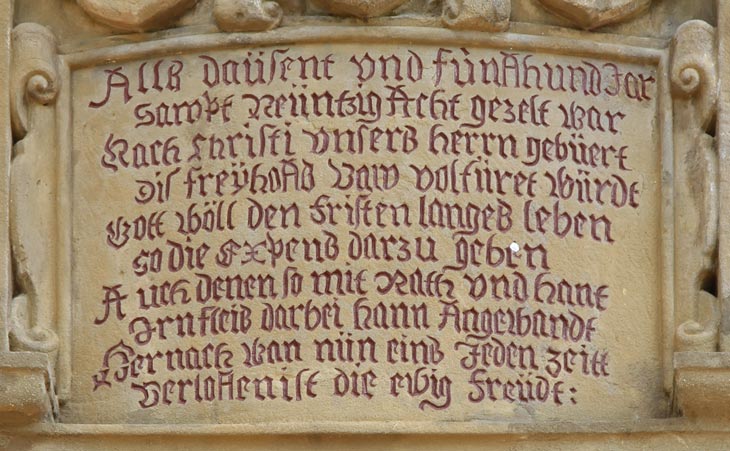 Allß daüsent vnd fünfhundJar
sampt Neüntzig Acht gezelt war
Nach Christi vnserß herrn gebüert
diß freÿhofß baw volfüret würdt
Gott wöll den fristen langeß leben
so die Expenß darzu geben
Auch denen so mit Rath vnd hant
Irn fleiß darbei hann Angewandt
Hernach wan nün einß Jeden zeitt
Verloffen ist die ewig freüdt: